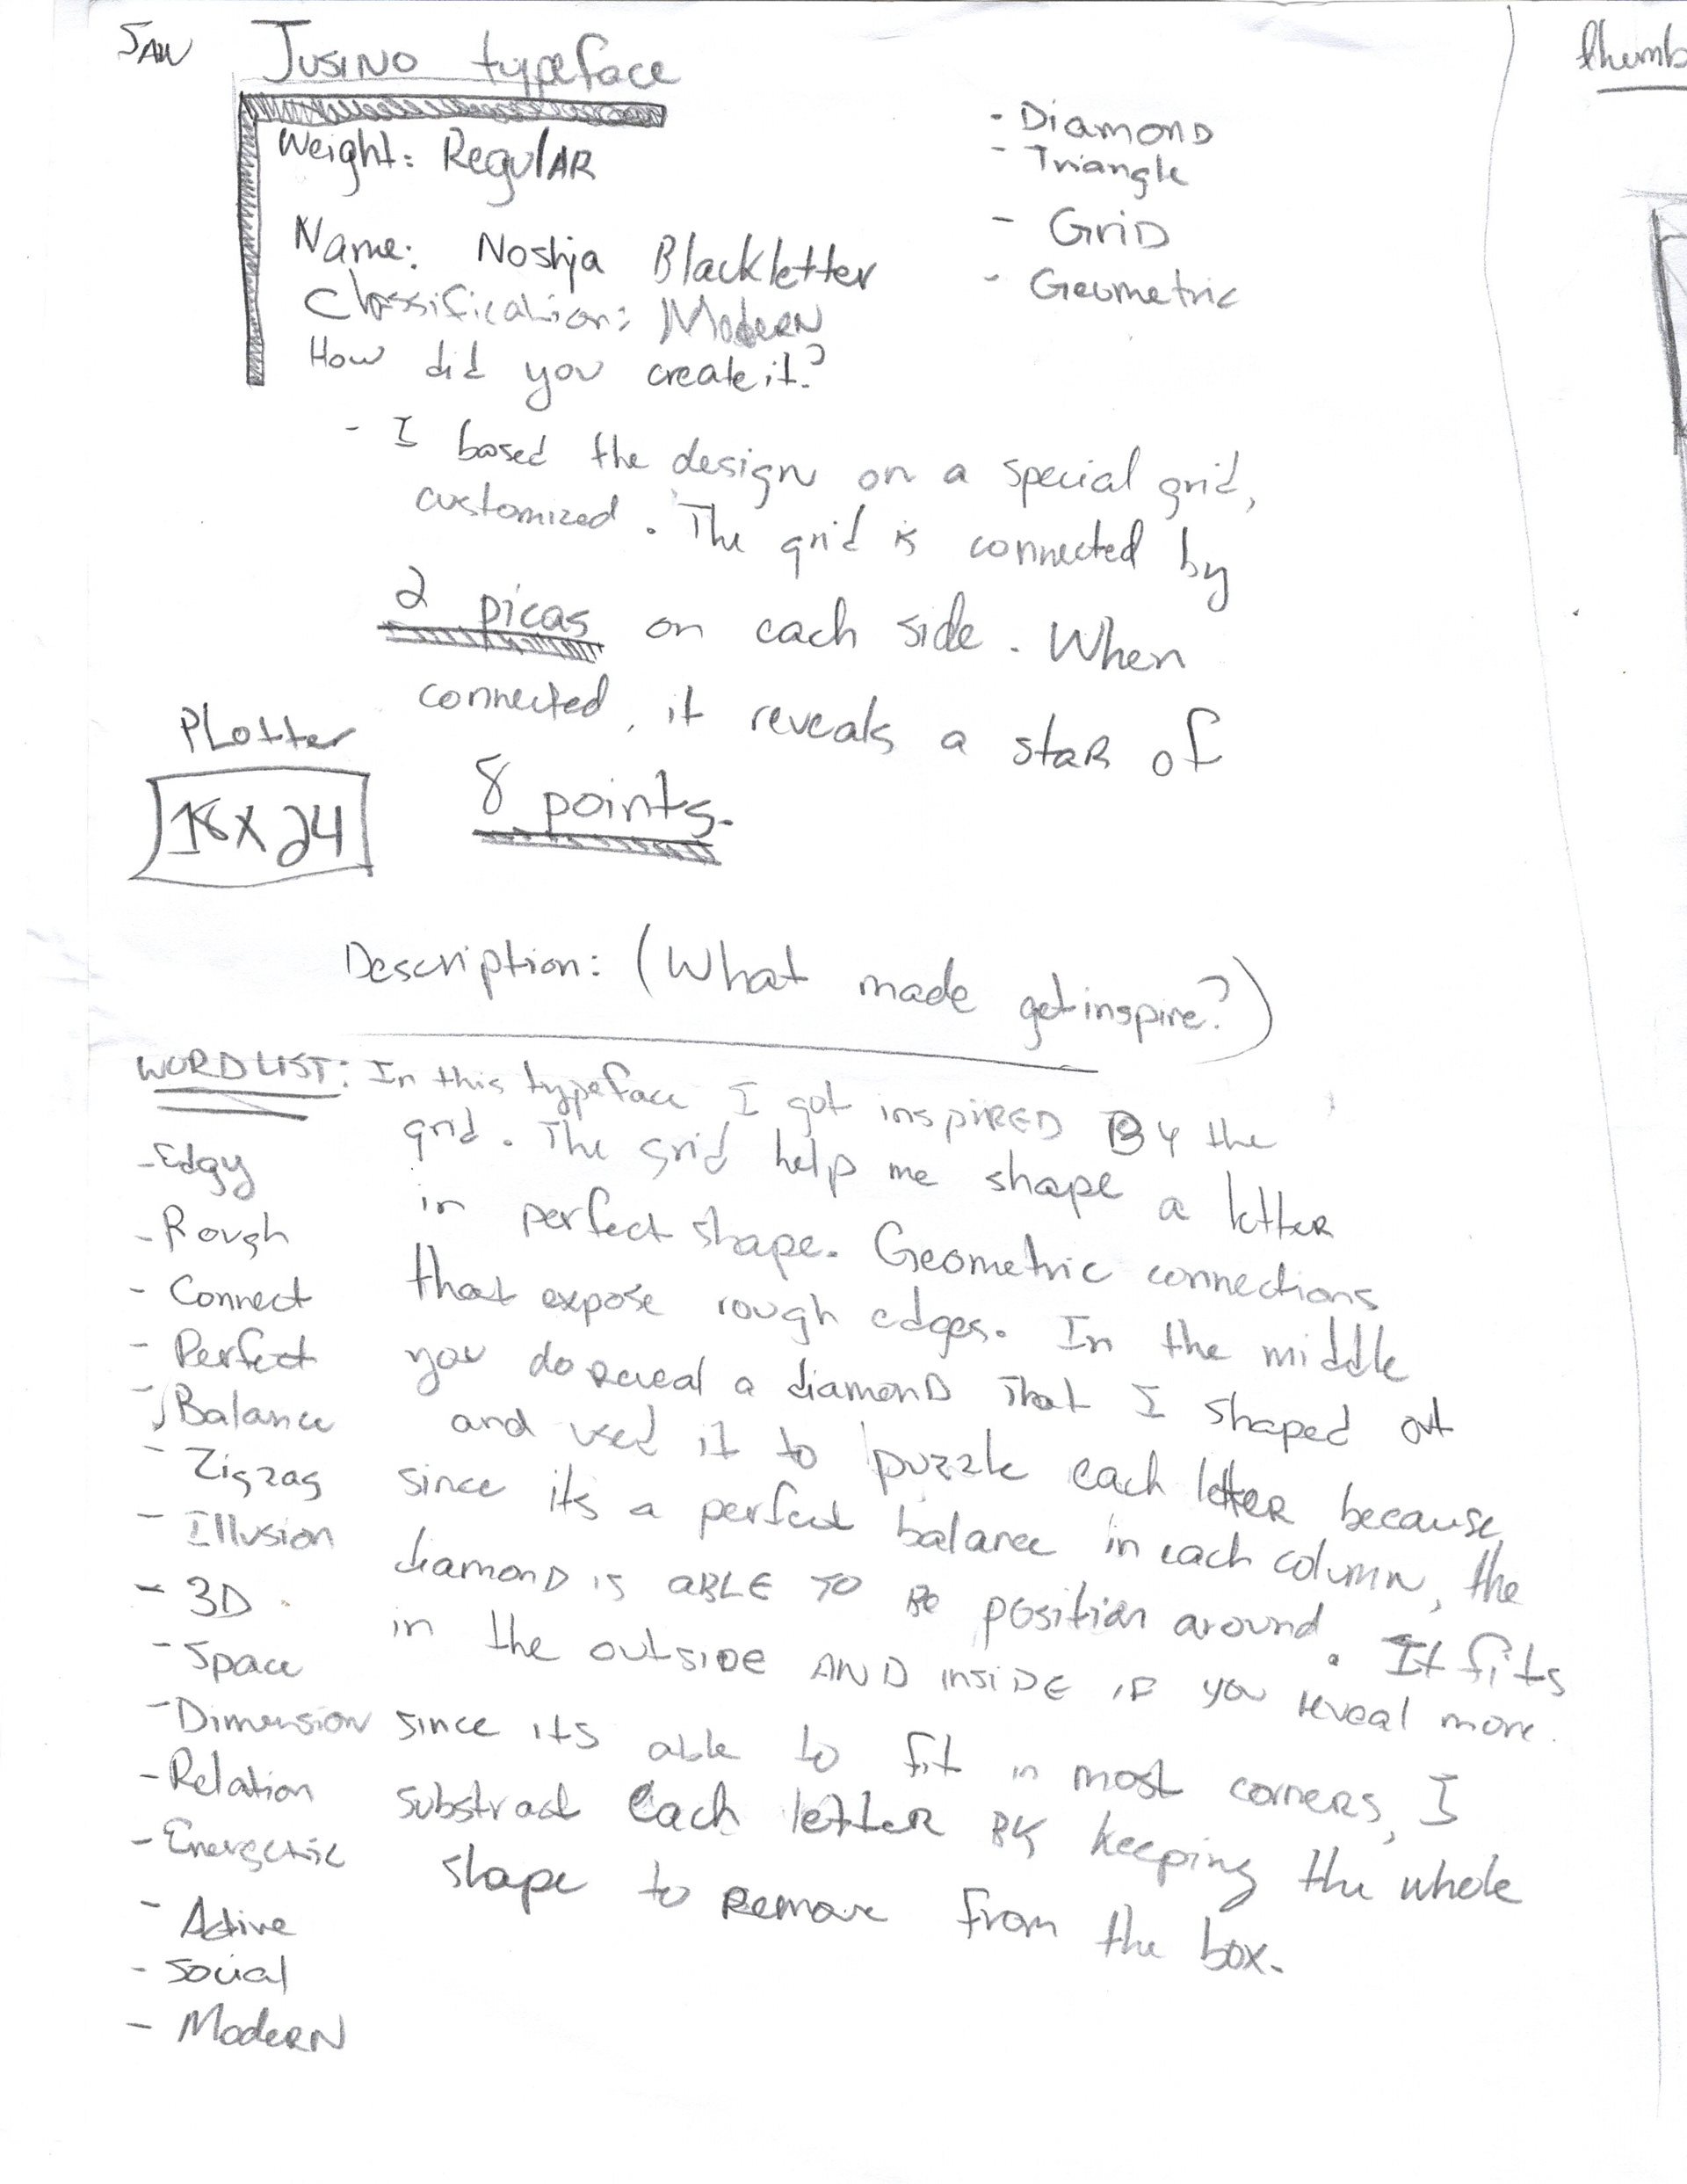 Jusino typeface
Weight: Regular
Name: Noshja Blackletter
Classification: Modern
How did you create it?
- Diamond
- Triangle
- Grid
- Geometric
- I based the design on a special grid,
customized. The grid is connected by
2 picas on each side. When
connected, it reveals a star of
8 points.
Plotter
18x24
Description: (What made get inspire?)
WORD LIST:
- Edgy
- Rough
- Connect
- Perfect
- Balance
- Zigzag
- Illusion
- 3D
- Space
- Dimension
- Relation
- Energetic
- Active
- Social
- Modern
In this typeface I got inspired By the
grid. The grid help me shape a letter
in perfect shape. Geometric connections
that expose rough edges. In the middle
you do reveal a diamond that I shaped out
and used it to puzzle each letter because,
since its a perfect balance in each column, the
diamond is ABLE TO Be position around. It fits
in the outside AND inside if you reveal more.
since its able to fit in most corners, I
substract each letter By keeping the whole
shape to remove from the box.
thumb